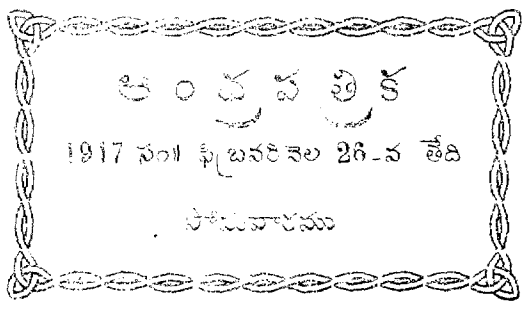 ఆంధ్రపత్రిక
1917 సం॥ ఫిబ్రవరి నెల 26-వ తేది
సోమవారము